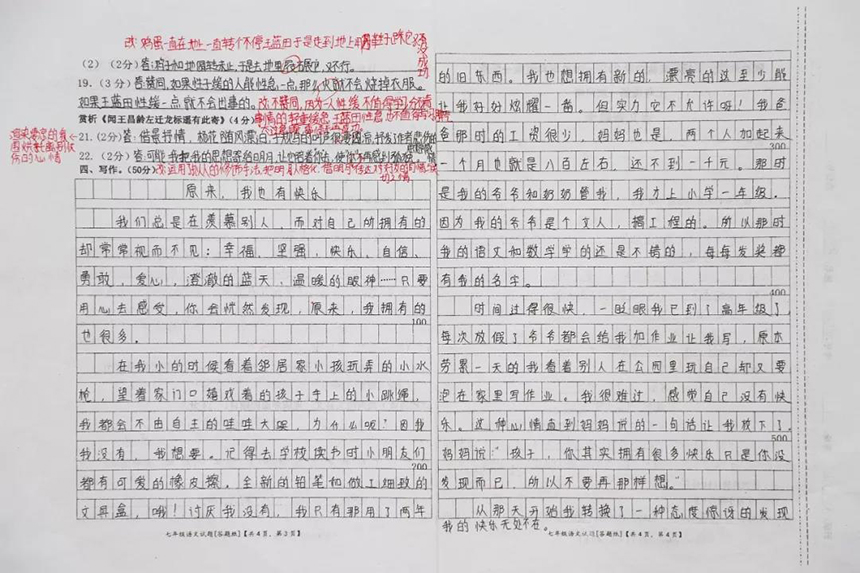 改：鸡蛋一直在地上一直转个不停王蓝田于是走到地上用
（2）（2分）答：鸡子如地圆转未止，于是去地里，又不行。
19.（3分）答赞同，如果性子缓的人能性急一点，那么就不会烧掉衣服。
如果王蓝田性缓一点，就不会出事的。改：不赞同，因为人性缓不值得学习，分清
赏析《闻王昌龄左迁龙标遥有此寄》（4分）
21.（2分）答：借景抒情，杨花随风漂泊，子规鸟的叫声很凄凉
22.（2分）答：可能我把我的思想寄给明月，让它把着你去，使你不再感到
四、写作。（50分）
原来，我也有快乐
我们总是在羡慕别人，而对自己所拥有的
却常常视而不见：幸福、坚强、快乐、自信、
勇敢，爱心，澄澈的蓝天，温暖的眼神……只要
用心去感受，你会恍然发现，原来，我拥有的
100
也很多。
在我小的时候看着邻居家小孩玩弄的小水
枪，望着家门口嬉戏着的孩子手上的小跳绳，
我都会不由自主的哇哇大哭，为什么呢？因我
我没有，我想要。记得去学校读书时小朋友们
200
都有可爱的橡皮擦，全新的铅笔和做工细致的
文具盒，哦！讨厌我没有，我只有那用了两年
七年级语文试题[答题纸]【共4页，第3页】
的旧东西。我也想拥有新的，漂亮的这至少能
让我好好炫耀一番。但实力它不允许呀！我爸
爸那时的工资很少，妈妈也是，两个人加起来
300
一个月也就是八百左右，还不到一千元。那时
是我的爷爷和奶奶管我，我才上小学一年级。
因为我的爷爷是个文人，搞工程的。所以那时
我的语文和数学学的还是不错的，每每发奖都
有我的名字。
400
时间过得很快，一眨眼我已到了高年级了，
每次放假了爷爷都会给我加作业让我写，原本
劳累一天的我看着别人在公园里玩自己却又要
泡在家里写作业。我很难过，感觉自己没有快
乐。这种心情直到妈妈说的一句话让我放下了。
500
妈妈说：“孩子，你其实拥有很多快乐只是你没
发现而已，所以不要再那样想。”
从那天开始我转换了一种态度惊讶的发现
我的快乐无处不在。
七年级语文试题[答题纸]【共4页，第4页】